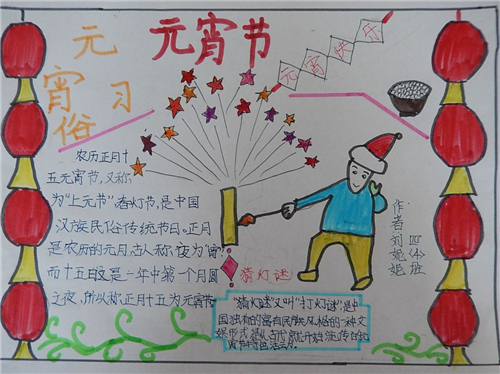 元宵节
元宵习俗
元宵快乐
农历正月十
五元宵节,又称
为“上元节”,春灯节,是中国
汉族民俗传统节日。正月
是农历的元月,古人称夜为“宵”
而十五日又是一年中第一个月圆
之夜,所以称正月十五为元宵节
猜灯谜
“猜灯谜”又叫“打灯谜”,是中
国独有的富有民族风格的一种文
娱形式
作者
四(4)班